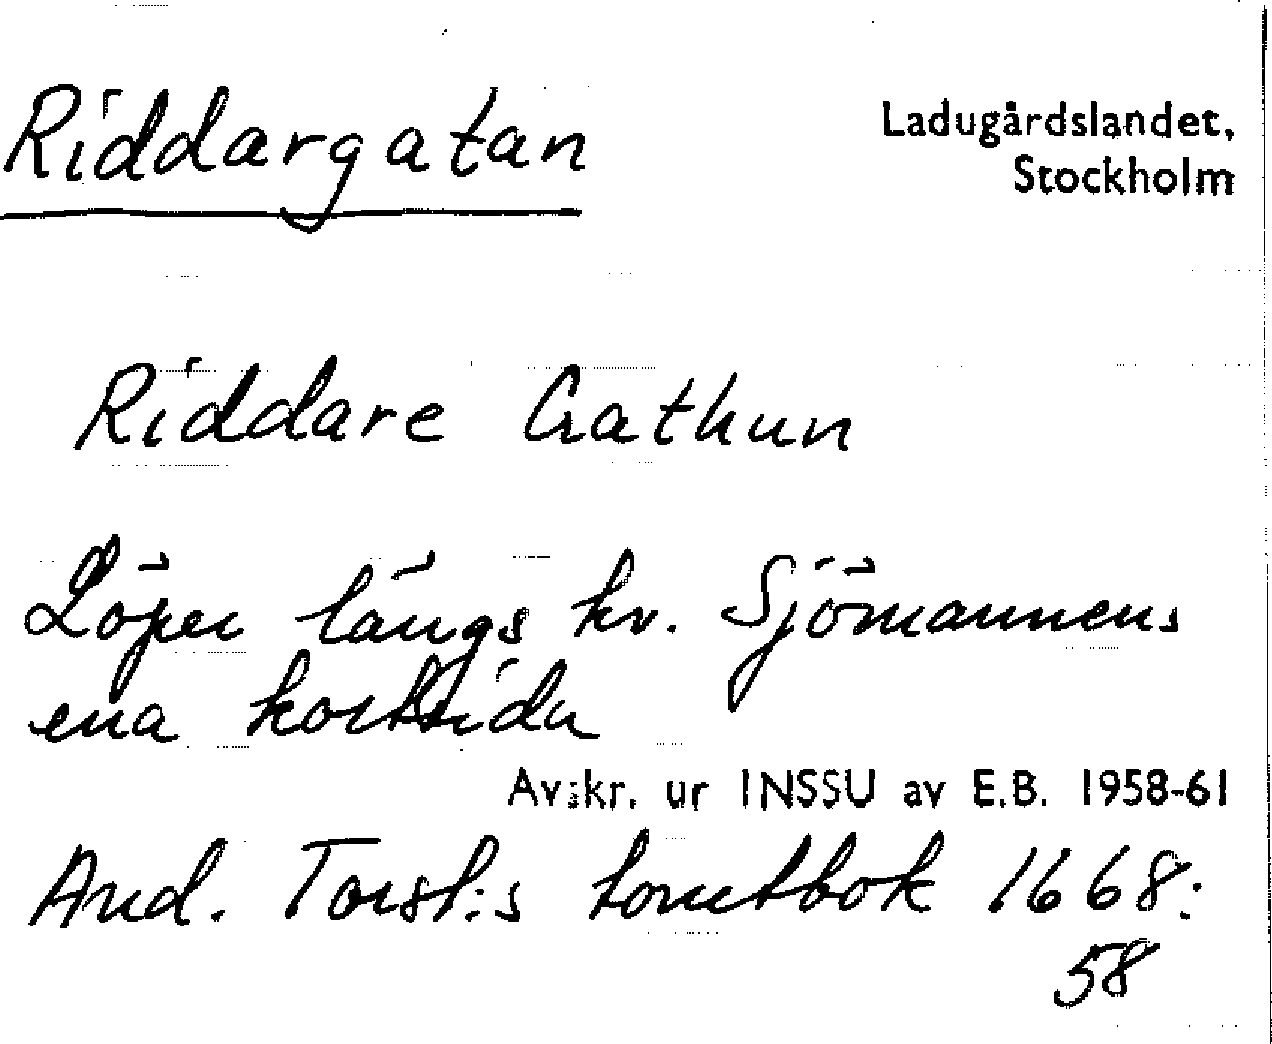 Riddargatan
Ladugårdslandet,
Stockholm
Riddare Gathun
Löper längs kv. Sjömannens
ena kortsida
Avskr. ur INSSU av E.B. 1958-61
And. Torst:s tomtbok 1668:
58